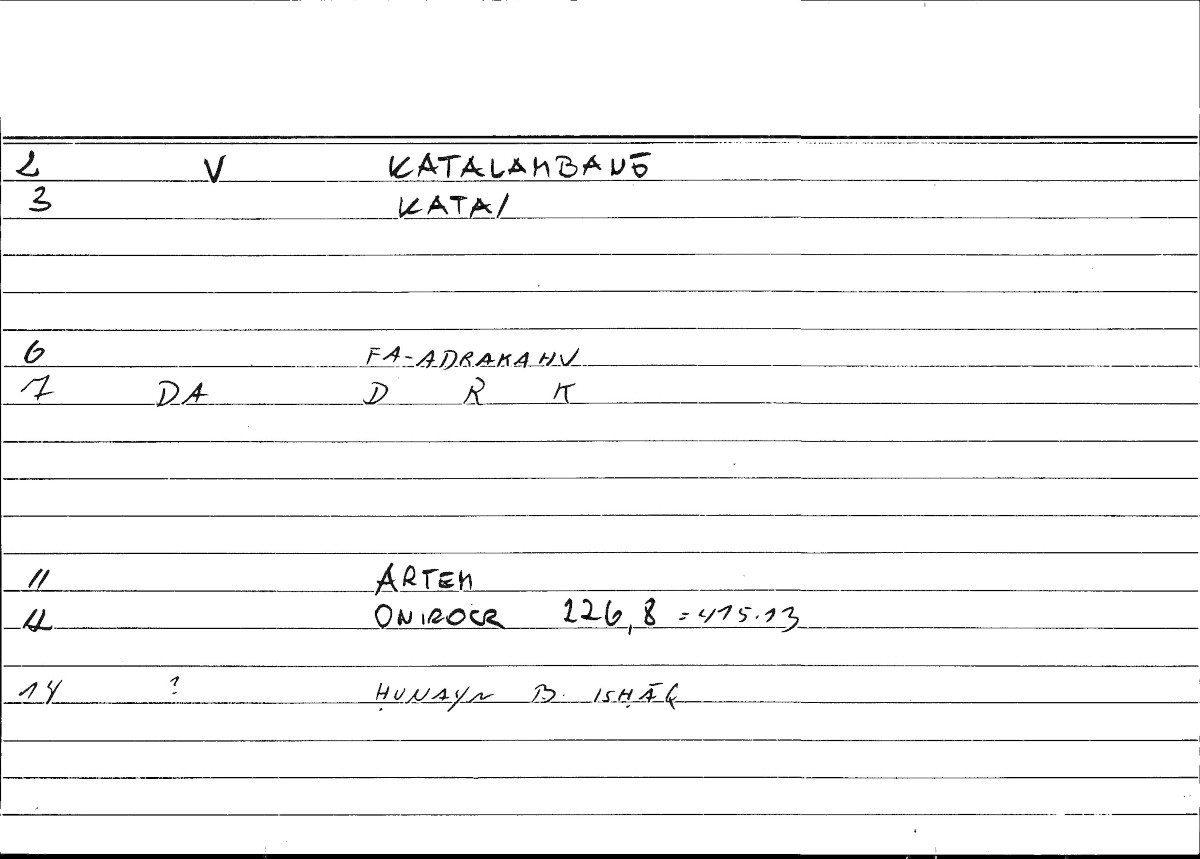 2 V KATALAMBANŌ
3 KATA/
6 FA-ADRAKAHU
7 DA D R K
11 ARTEM
12 ONIROCR 226,8 = 415.13
14 ? ḤUNAYN B. ISḤĀQ